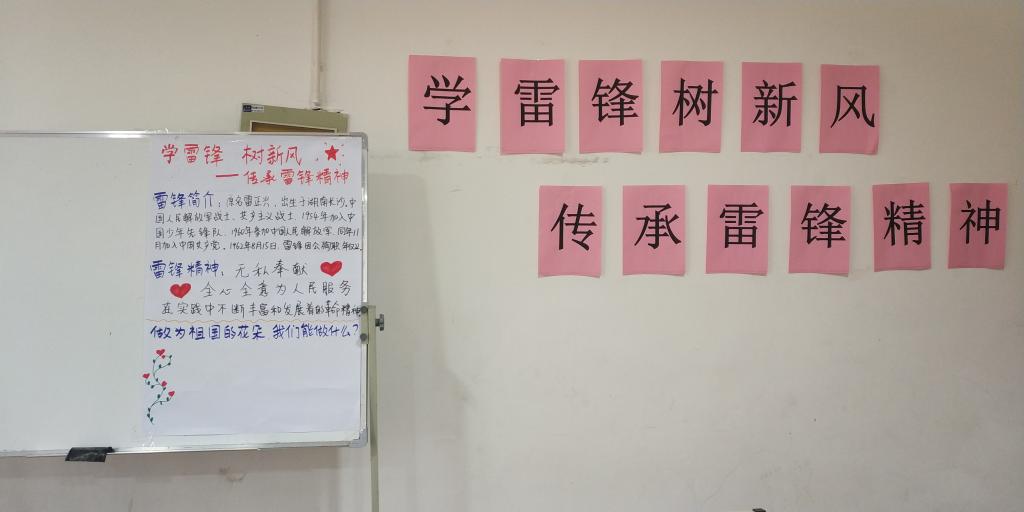 学雷锋树新风
传承雷锋精神
学雷锋 树新风
——传承雷锋精神
雷锋简介：原名雷正兴，出生于湖南长沙，中
国人民解放军战士、共产主义战士，1954年加入中
国少年先锋队，1960年参加中国人民解放军，同年11
月加入中国共产党。1962年8月15日，雷锋因公殉职，年仅22
雷锋精神：无私奉献
全心全意为人民服务
在实践中不断丰富和发展着的革命精神
做为祖国的花朵，我们能做什么？